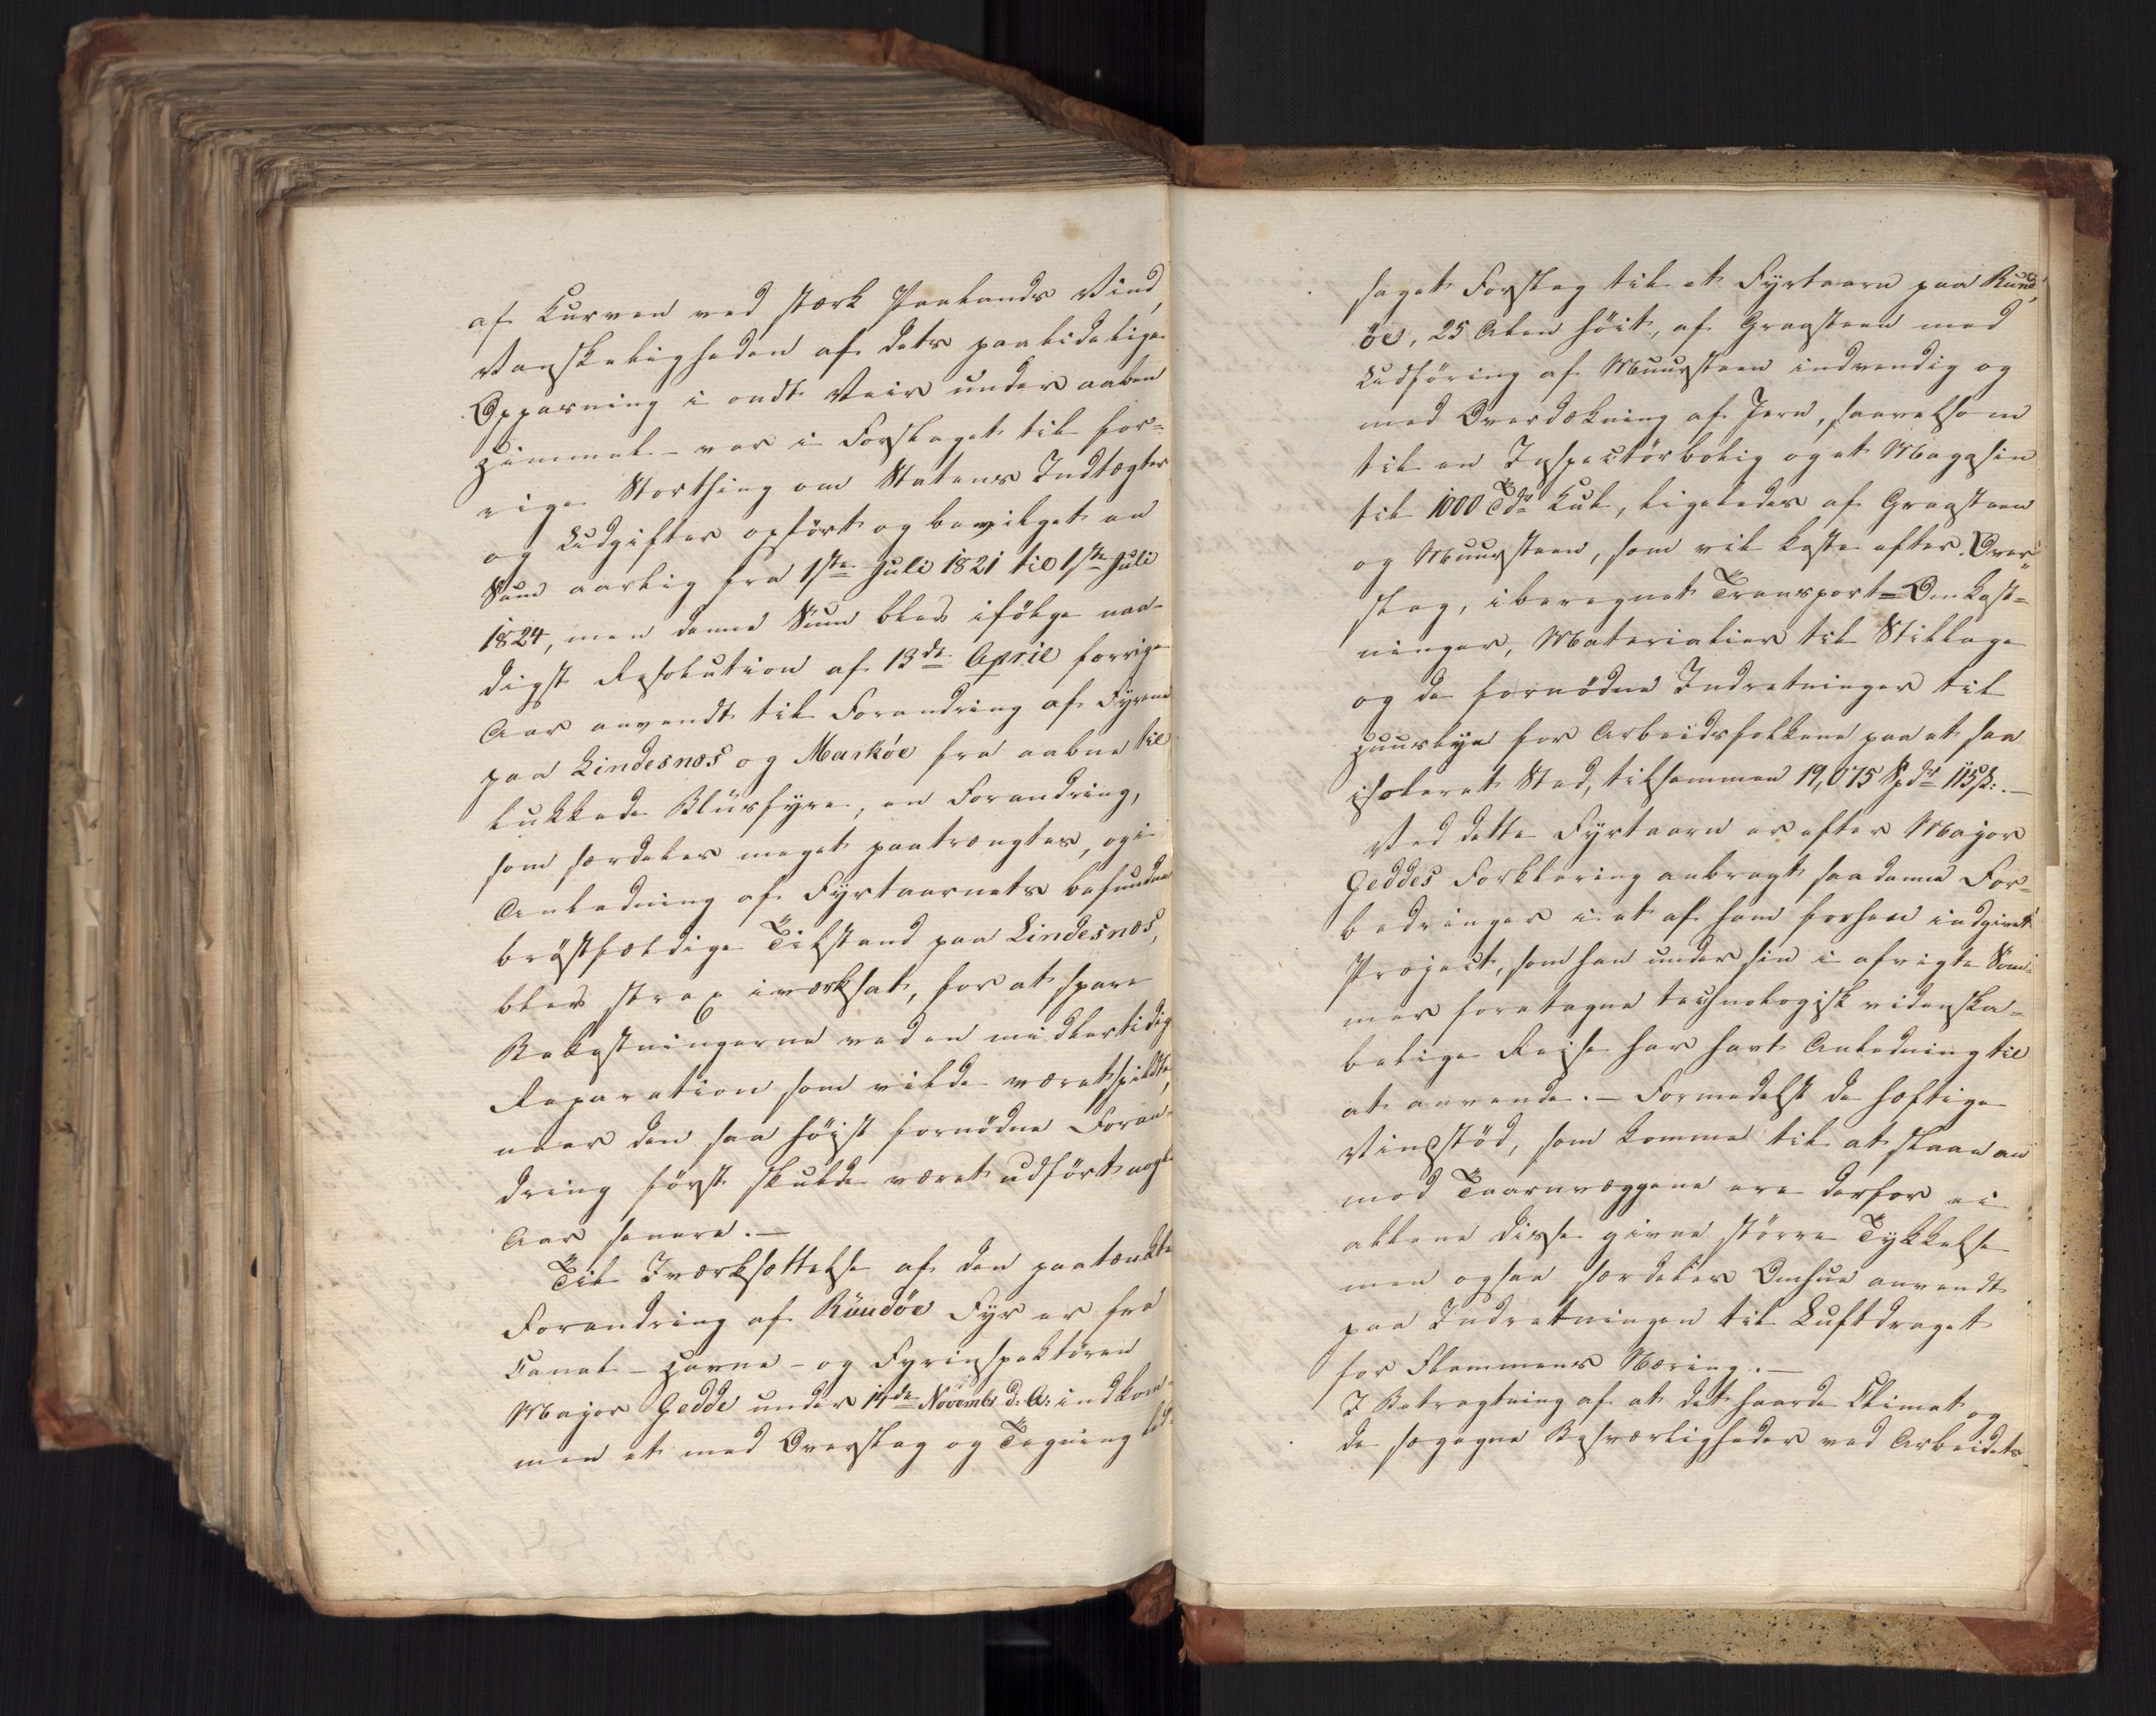 af Kurven ved stærk Paalands Vind,
Vanskeligheden af dets paalidelige
Opparning i ondt Veir under aaben
Himmel - var i Forslaget til for-
rige Storthing om Statens Indtægter
og Udgifter opført og bevilget en
Sum aarlig fra 1ste Juli 1821 til 1ste Juli
1824, men denne Sum blev ifølge naa-
digst Resolution af 13de April forrige
Aar anvendt til Forandring af Fyrene
paa Lindesnæs og Markøe fra aabne til
lukkede Blüsfyre, en Forandring,
som særdeles meget paatrængtes, og i
Anledning af Fyrtaarnets befundne
brøstfældige Tilstand paa Lindesnæs,
blev strax iværksat, for at spare
Bekostningerne ved en midlertidig
Reparation som vilde været spildte,
naar den saa höist fornødne Foran-
dring først skulde været udført nogle
Aar senere. —
Til Iværksættelse af den paatænkte
Forandring af Ründøe Fyr er fra
Canal- Havne- og Fyrinspektøren
Major Gedde under 14de Novembr d. A: indkom-
men et med Overslag og Tegning led-
saget Forslag til et Fyrtaarn paa Rund-
øe, 25 Alen höit, af Graasteen med
Udføring af Muursteen indvendig og
med Overdækning af Jern, saavelsom
til en Inspectörbolig og et Magasin
til 1000 Tdr Kul, ligeledes af Graasteen
og Muursteen, som vil koste efter Over-
slag, iberegnet Transport-Omkost-
ninger, Materialier til Stillage
og de fornødne Indretninger til
Huuslye for Arbeidsfolkene paa et saa
isoleret Sted, tilsammen 19,075 Spdr 115 ß. —
Ved dette Fyrtaarn er efter Major
Geddes Forklaring anbragt saadanne For-
bedringer i et af ham forhen indgivet
Project, som han under sin i afvigte Som-
mer foretagne technologisk videnska-
belige Reise har havt Anledning til
at anvende. — Formedelst de hæftige
Vindstød, som komme til at slaae an
mod Taarnvæggene ere derfor ei
allene disse givne større Tykkelse
men ogsaa særdeles Omhue anvendt
paa Indretningen til Luftdraget
for Flammens Næring. —
I Betragtning af at det haarde Climat og
de søgegne Besværligheder ved Arbeidets